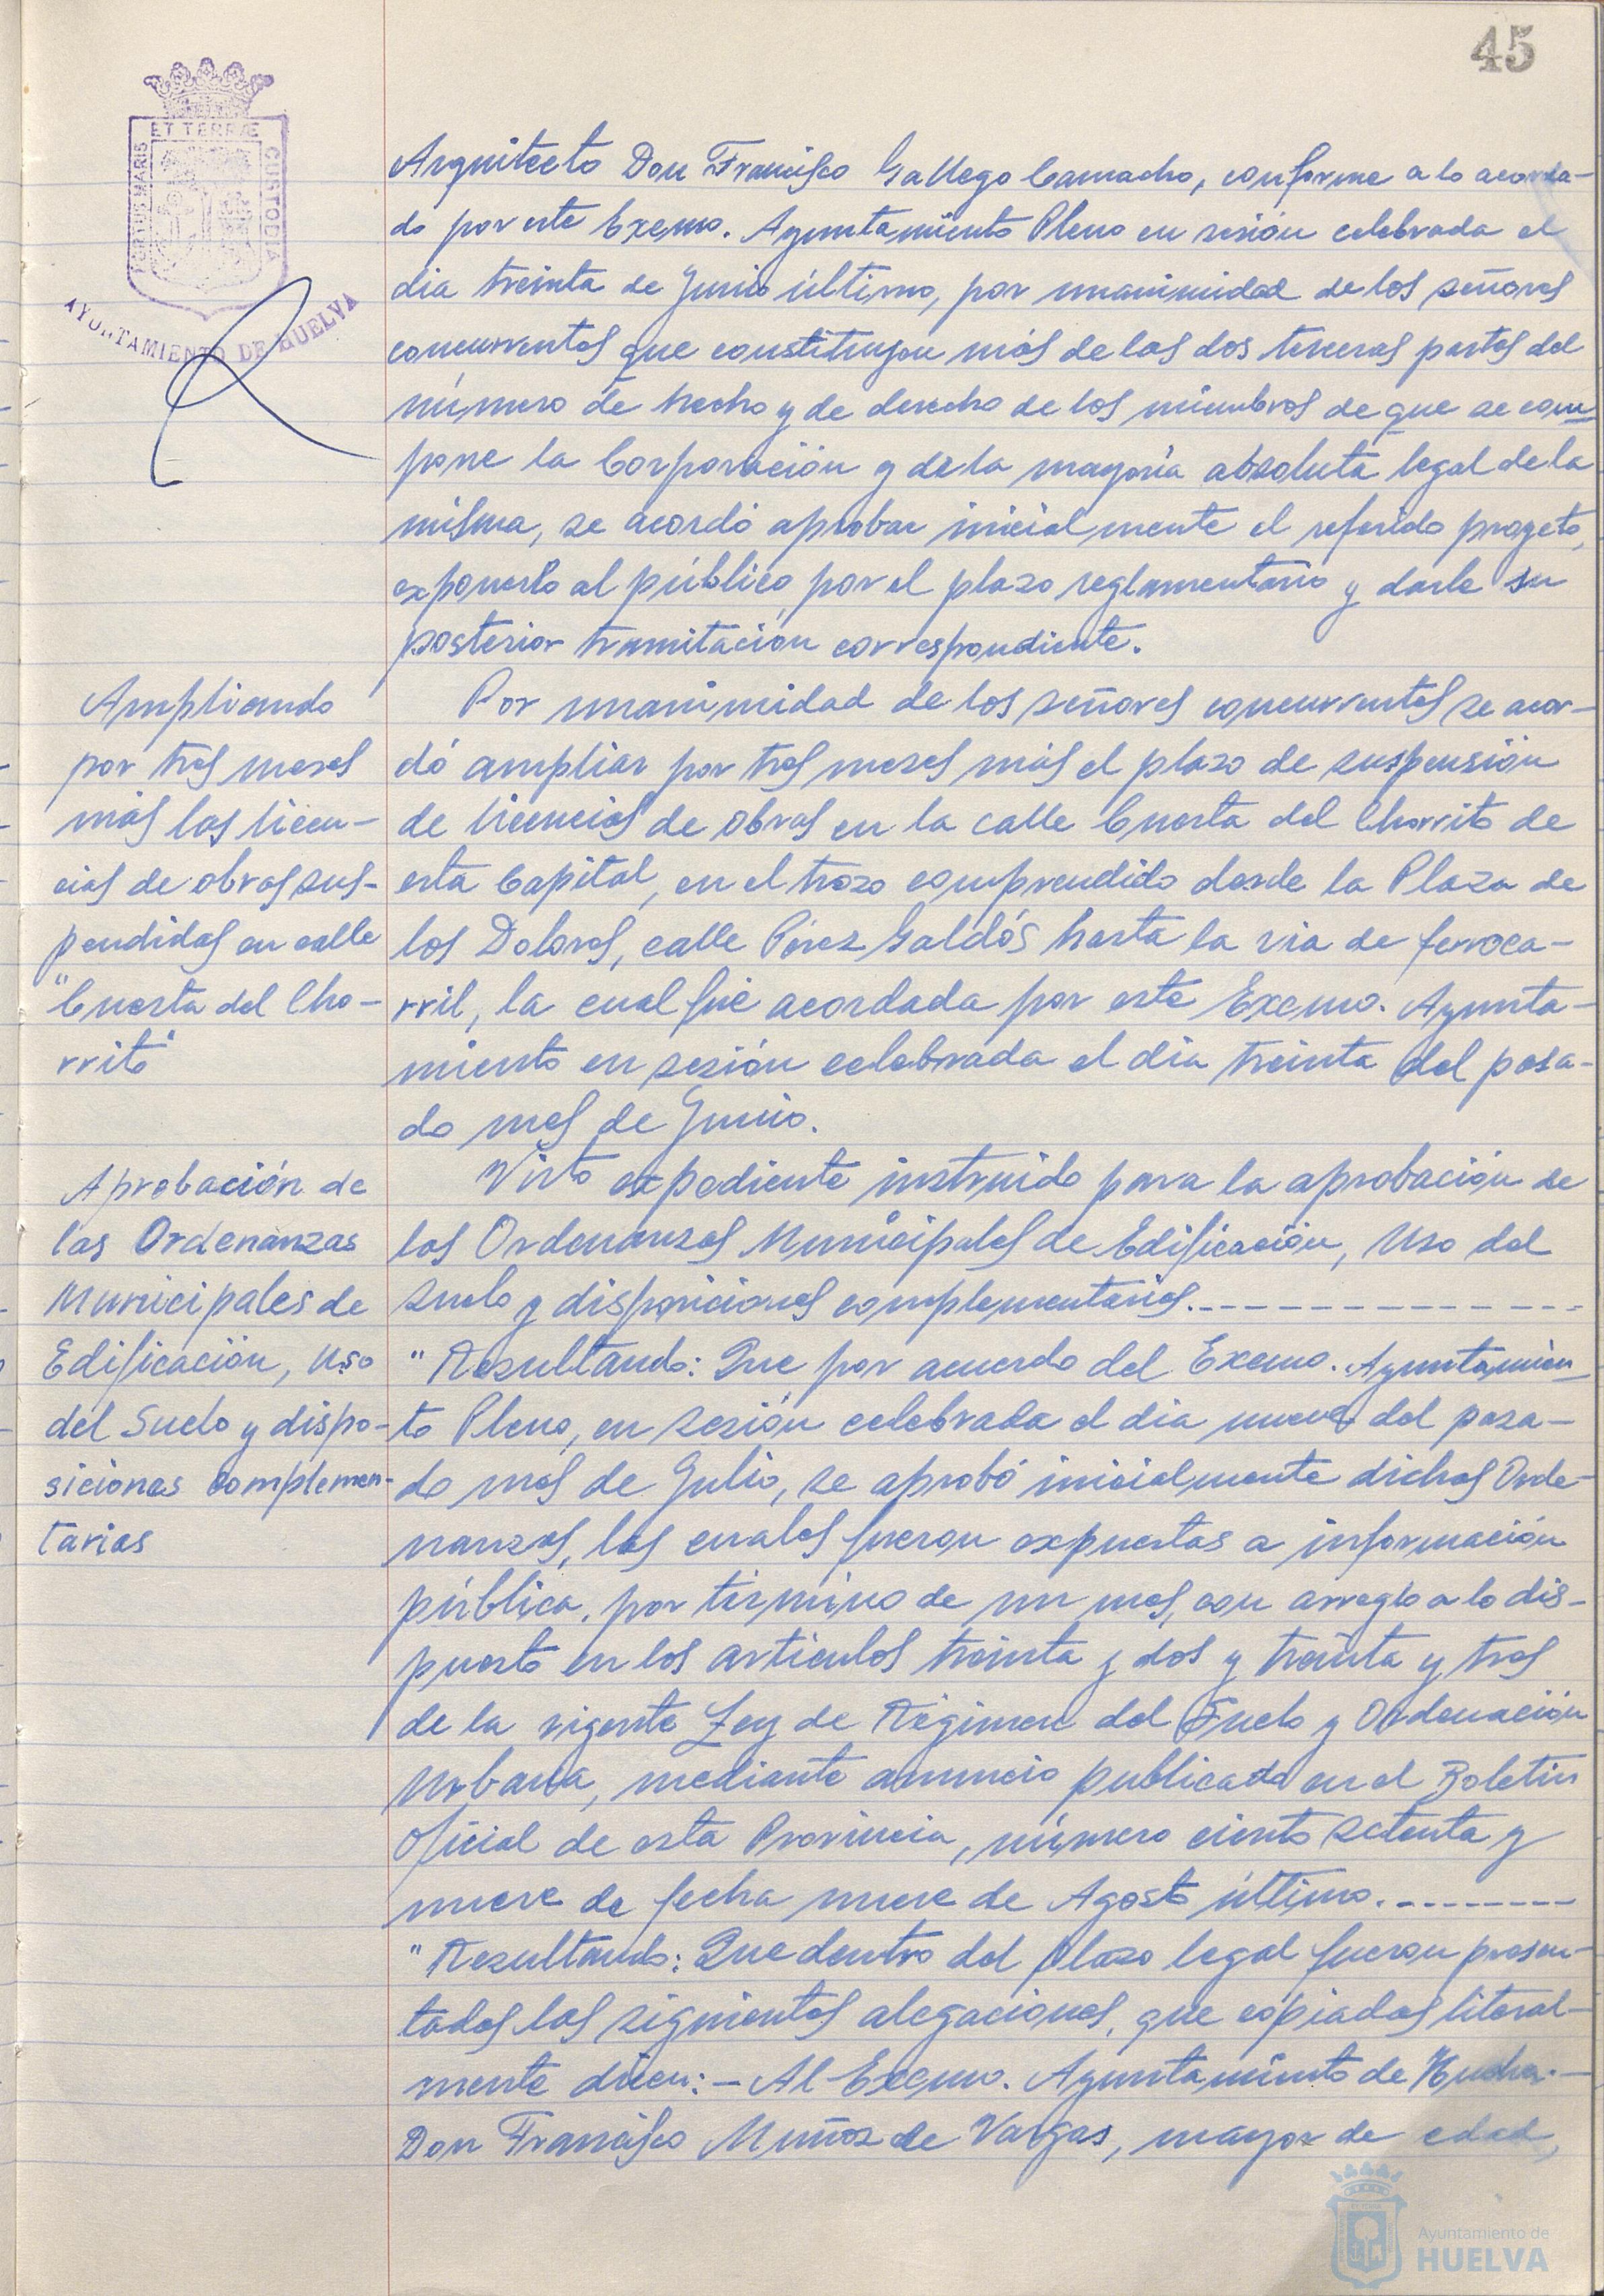 45
ET TERRÆ
PORTUS MARIS
CUSTODIA
AYUNTAMIENTO DE HUELVA
Arquitecto Don Francisco Gallego Camacho, conforme a lo acorda-
do por este Excmo. Ayuntamiento Pleno en sesión celebrada el
dia treinta de Junio último, por unanimidad de los señores
concurrentes que constituyen más de las dos terceras partes del
número de hecho y de derecho de los miembros de que se com-
pone la Corporación y de la mayoria absoluta legal de la
misma, se acordó aprobar inicialmente el referido proyecto,
exponerlo al público por el plazo reglamentario y darle su
posterior tramitación correspondiente.
Ampliando
por tres meses
más las licen-
cias de obras sus-
pendidas en calle
"Cuesta del Cho-
rrito"
Por unanimidad de los señores concurrentes se acor-
dó ampliar por tres meses más el plazo de suspensión
de licencias de obras en la calle Cuesta del Chorrito de
esta Capital, en el trozo comprendido desde la Plaza de
los Dolores, calle Pérez Galdós hasta la via de ferroca-
rril, la cual fué acordada por este Excmo. Ayunta-
miento en sesión celebrada el dia treinta del pasa-
do mes de Junio.
Aprobación de
las Ordenanzas
Municipales de
Edificación, Uso
del Suelo y dispo-
siciones complemen-
tarias
Visto expediente instruido para la aprobación de
las Ordenanzas Municipales de Edificación, Uso del
Suelo y disposiciones complementarias.-------------
"Resultando: Que por acuerdo del Excmo. Ayuntamien-
to Pleno, en sesión celebrada el dia nueve del pasa-
do mes de Julio, se aprobó inicialmente dichas Orde-
nanzas, las cuales fueron expuestas a información
pública, por término de un mes, con arreglo a lo dis-
puesto en los articulos treinta y dos y treinta y tres
de la vigente Ley de Régimen del Suelo y Ordenación
Urbana, mediante anuncio publicado en el Boletin
Oficial de esta Provincia, número ciento setenta y
nueve de fecha nueve de Agosto último.--------
"Resultando: Que dentro del plazo legal fueron presen-
tadas las siguientes alegaciones, que copiadas literal-
mente dicen:- Al Excmo. Ayuntamiento de Huelva.-
Don Francisco Muñoz de Vargas, mayor de edad,
Ayuntamiento de
HUELVA